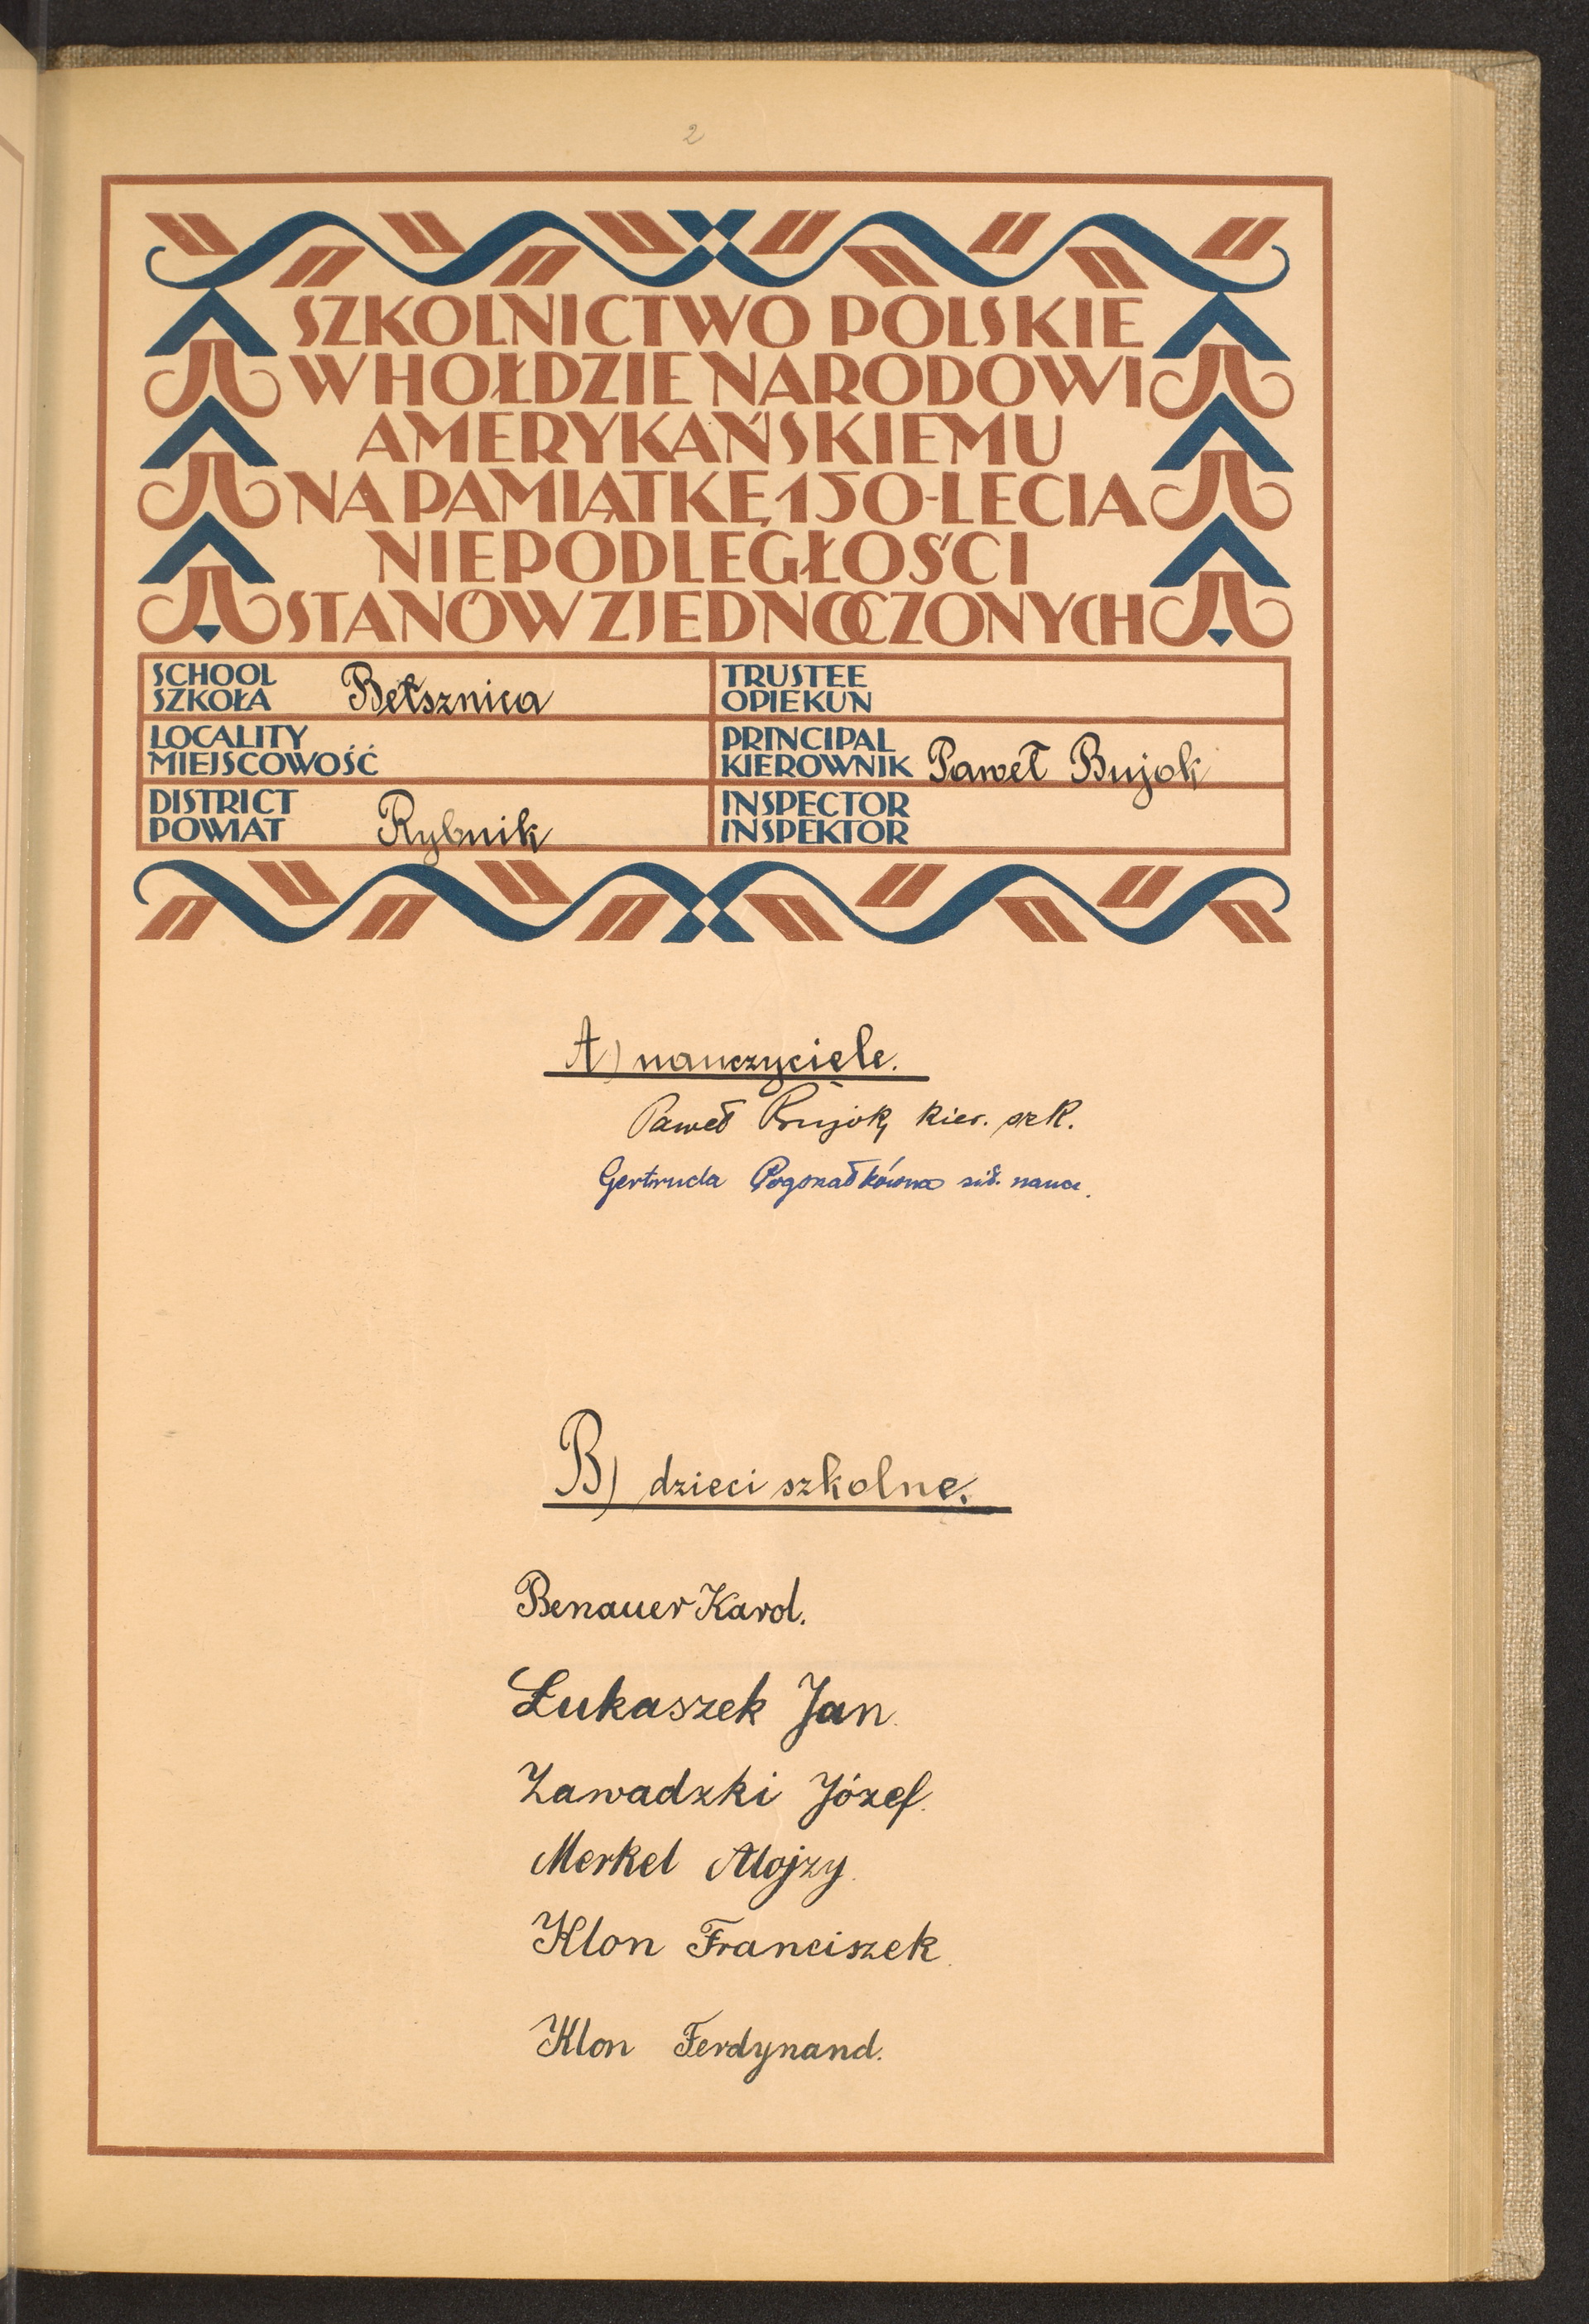 2
SZKOLNICTWO POLSKIE
W HOŁDZIE NARODOWI
AMERYKAŃSKIEMU
NA PAMIĄTKĘ 150-LECIA
NIEPODLEGŁOŚCI
STANÓW ZJEDNOCZONYCH
SCHOOL
SZKOŁA Bełsznica
TRUSTEE
OPIEKUN
LOCALITY
MIEJSCOWOŚĆ
PRINCIPAL
KIEROWNIK Paweł Bujok
DISTRICT
POWIAT Rybnik
INSPECTOR
INSPEKTOR
A) nauczyciele.
Paweł Bujok, kier. szk.
Gertruda sił. naucz.
B) dzieci szkolne.
Benauer Karol.
Łukaszek Jan.
Zawadzki Józef.
Merkel Alojzy.
Klon Franciszek.
Klon Ferdynand.